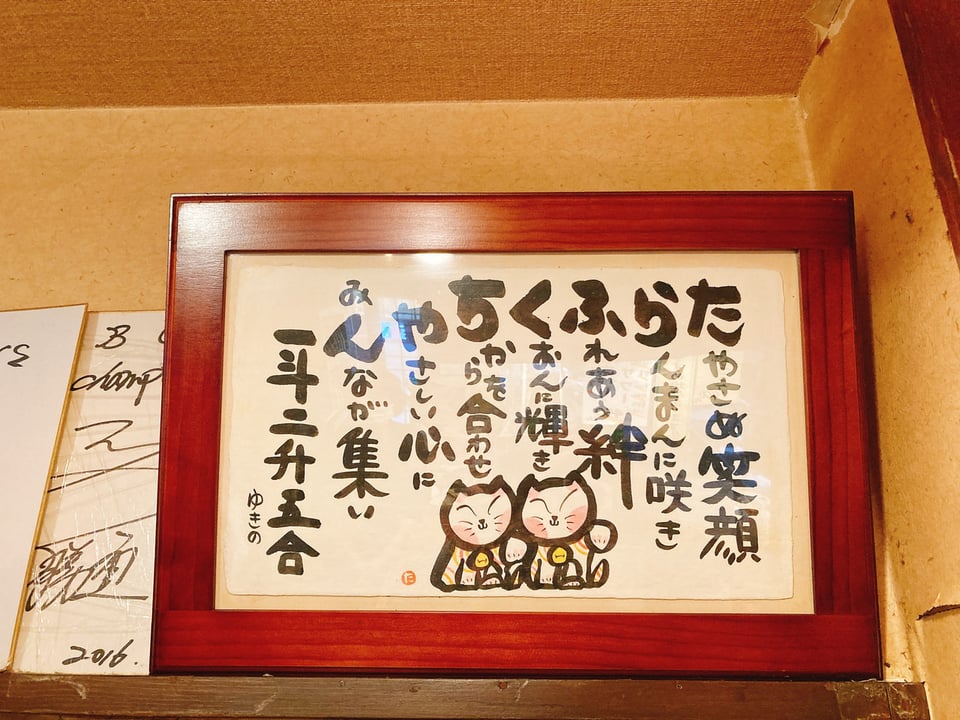 たやさぬ笑顔
らんまんに咲き
ふれあう絆
くおんに輝き
ちからを合わせ
やさしい心に
みんなが集い
一斗二升五合
ゆきの
B
champ
2016.